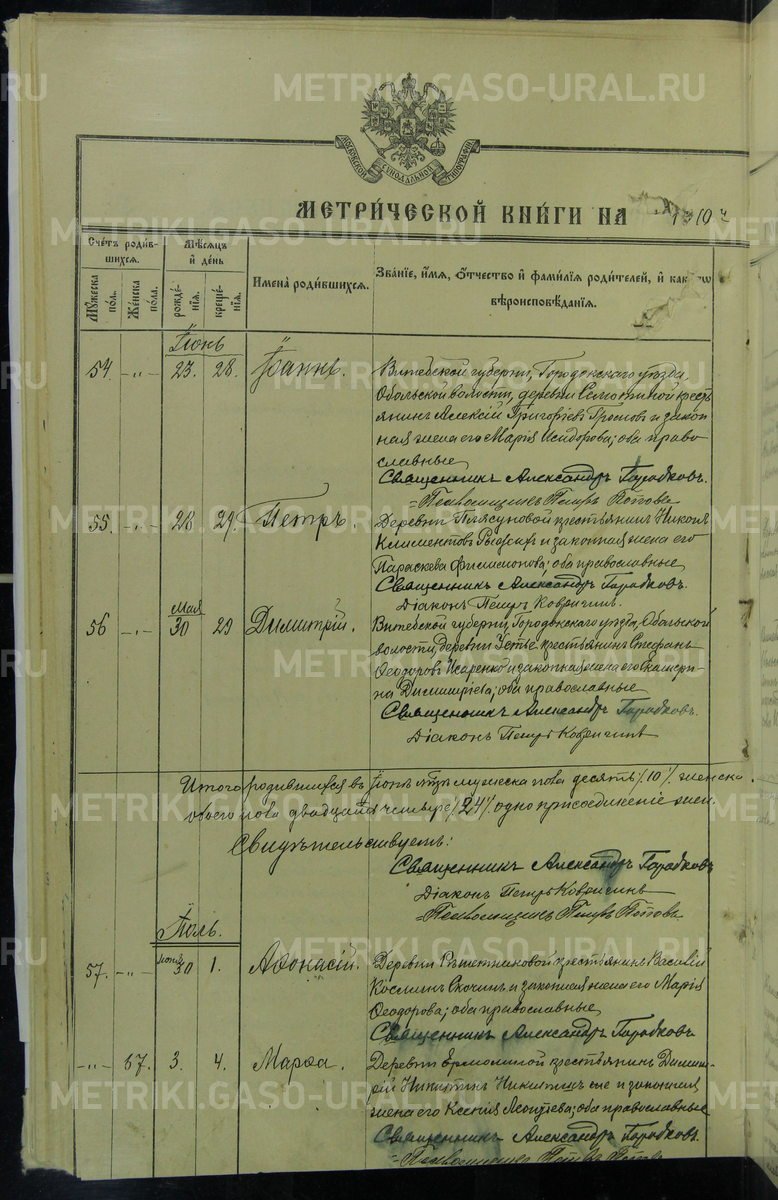 METRIKI.GASO-URAL.RU
МОСКОВСКОЙ СѴНОДАЛЬНОЙ ТИПОГРАФІИ
МЕТРИ́ЧЕСКОЙ КНИ́ГИ НА 1910 г
Сче́тъ роди́вшихся.
Мѣ́сяцъ и де́нь
Имена̀ роди́вшихся.
Зва́ніе, и́мя, о́тчество и фами́лія роди́телей, и как
вѣроисповѣ́данія.
Мꙋ́жеска по́л.
Же́нска по́ла.
рожде́нія.
креще́нія.
Іюнь
54. -"- 23. 28. Іоаннъ.
Витебской губерніи, Городокскаго уѣзда
Обольской волости, деревни крест
янинъ Алексій Григоріевъ и закон
ная жена его Марія Исидорова; оба право
славные
Священникъ Александръ Городковъ.
Псаломщикъ Петръ Поповъ
55. -"- 28 29. Петръ.
Деревни Плясуновой крестьянинъ Никонъ
Климентовъ и законная жена его
Параскева Филимонова; оба православные
Священникъ Александръ Городковъ.
Діаконъ Петръ Ковригинъ.
Мая
56 -"- 30 29 Димитрій.
Витебской губерніи, Городокскаго уѣзда, Обольской
волости, деревни Устье крестьянинъ Стефанъ
Ѳеодоровъ Исаренко и законная жена его Екатери
на Димитріева; оба православные
Священникъ Александръ Городковъ.
Діаконъ Петръ Ковригинъ
Итого родившихся въ Іюнѣ м-цѣ мужеска пола десять /10/ женска
обоего пола двадцать четыре /24/ одно присоединеніе
Свидѣтельствуетъ:
Священникъ Александръ Городковъ
Діаконъ Петръ Ковригинъ
Псаломщикъ Петръ Поповъ
Іюль.
Іюня
57. -"- 30 1. Аѳонасій.
Деревни Рѣшетниковой крестьянинъ Василій
Косминъ и законная жена его Марія
Ѳеодорова; оба православные
Священникъ Александръ Городковъ
-"- 67. 3. 4. Марѳа.
Деревни Ермолиной крестьянинъ Димит
рій Никитинъ Никитинъ же и законная
жена его Ксенія Леонтіева; оба православные
Священникъ Александръ Городковъ.
Псаломщикъ Петръ Поповъ